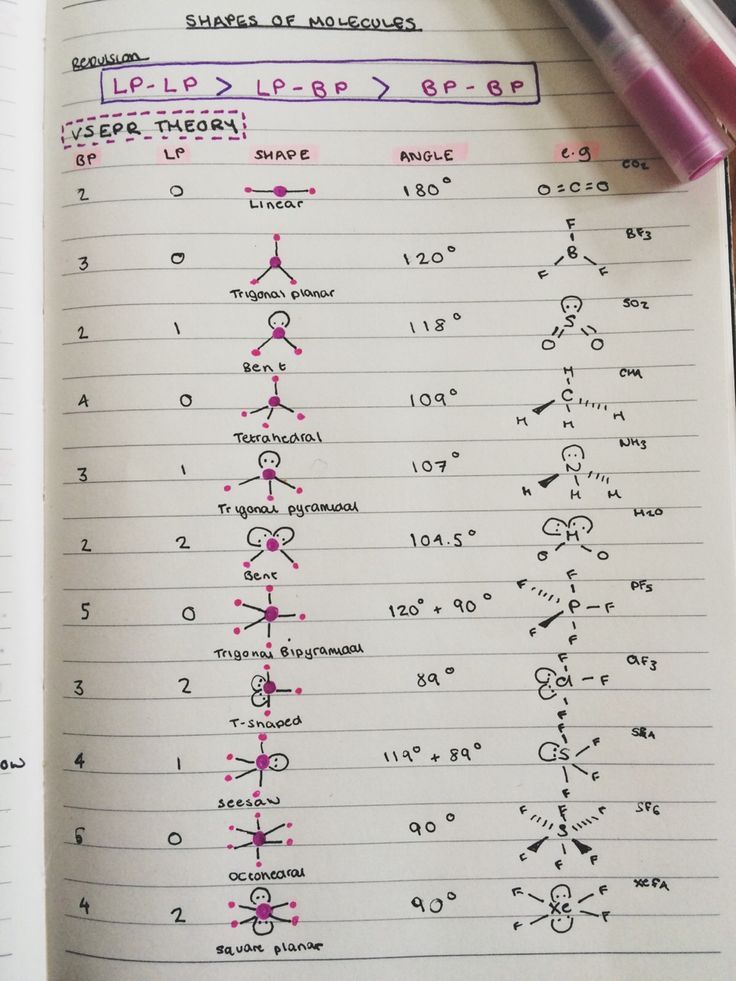 SHAPES OF MOLECULES
Repulsion
LP-LP > LP-BP > BP-BP
VSEPR THEORY
BP LP SHAPE ANGLE e.g
2 0 Linear 180° O=C=O CO2
3 0 Trigonal planar 120° F B F F BF3
2 1 Bent 118° S O O SO2
4 0 Tetrahedral 109° H C H H H CH4
3 1 Trigonal pyramidal 107° N H H H NH3
2 2 Bent 104.5° H O O H2O
5 0 Trigonal Bipyramidal 120° + 90° F F P F F F PF5
3 2 T-shaped 89° F Cl F F ClF3
4 1 seesaw 119° + 89° F S F F F SF4
6 0 octohedral 90° F F F S F F F SF6
4 2 square planar 90° F F Xe F F XeF4
ow